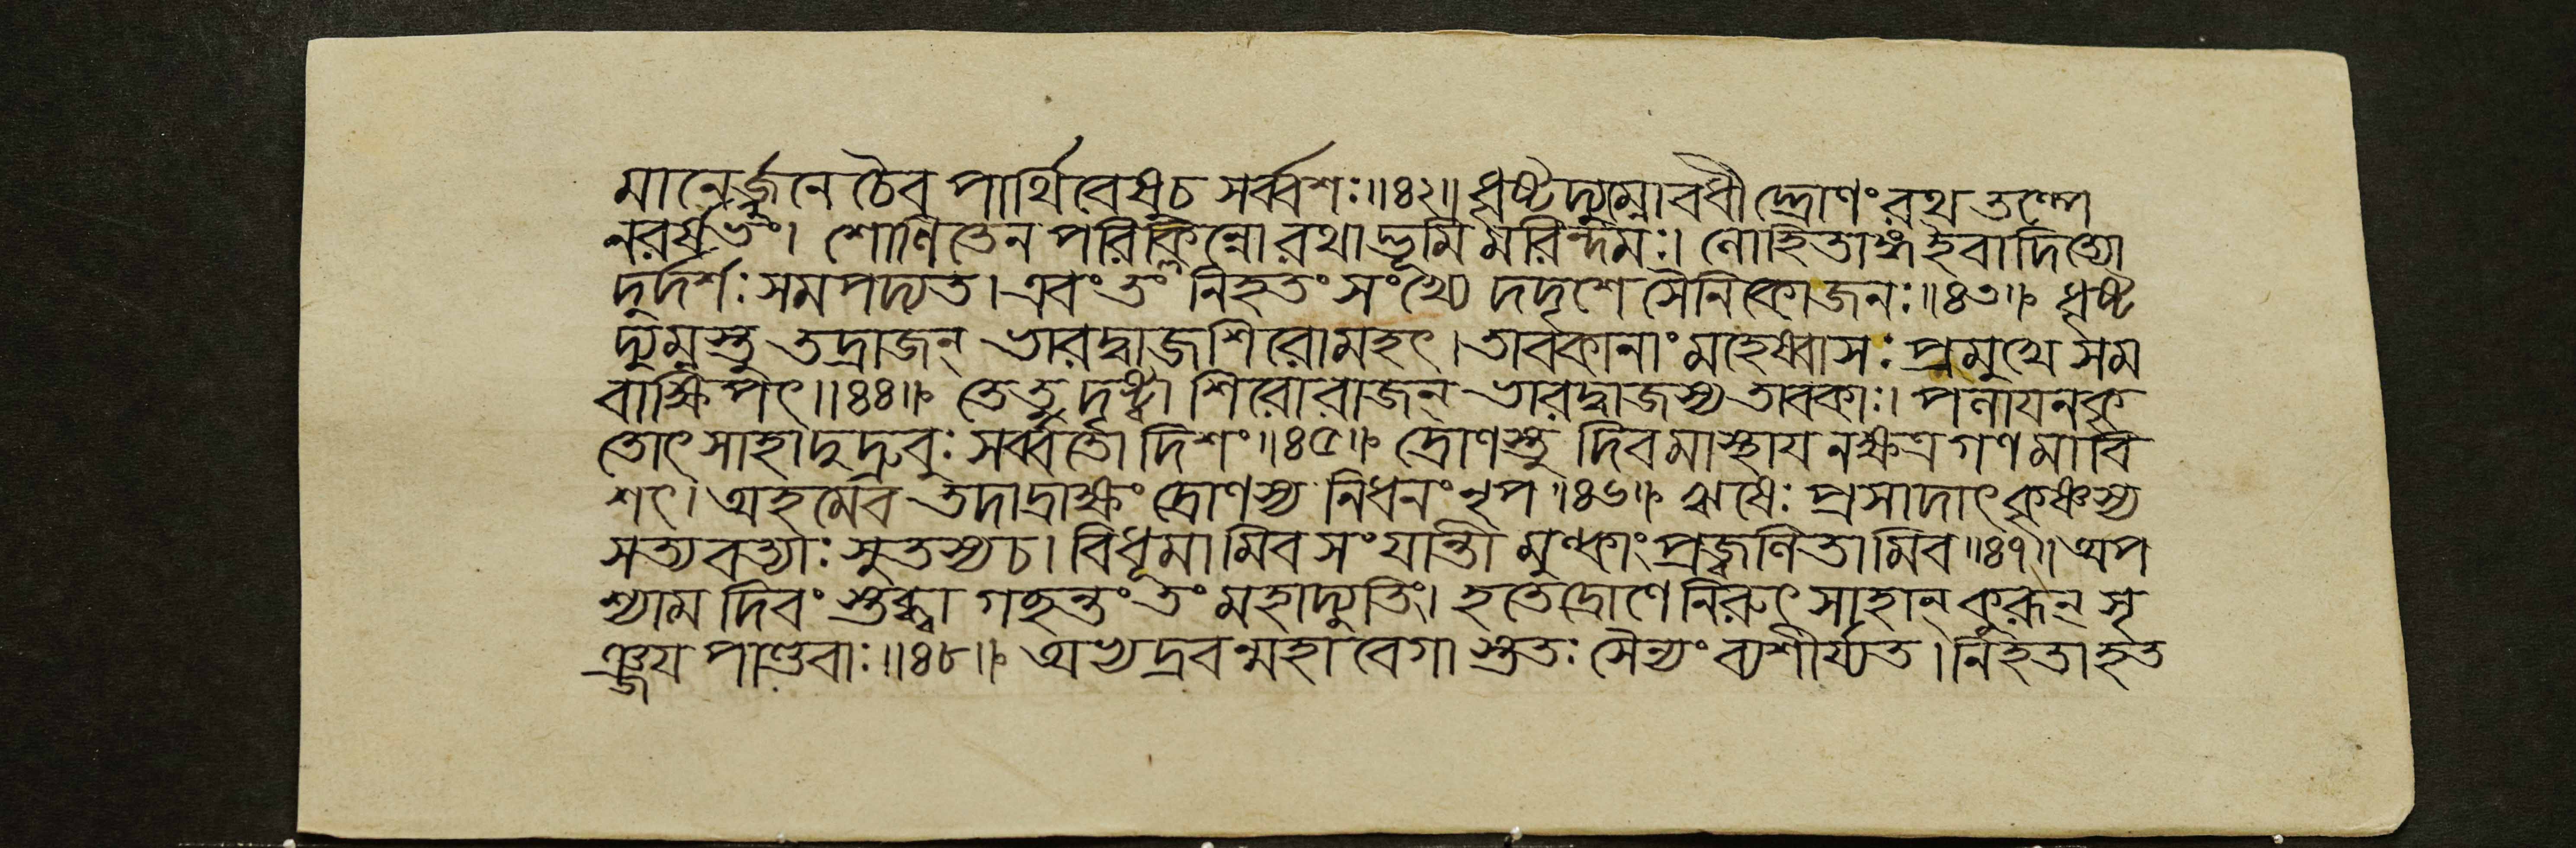 মানের্জ্জুনে চৈব পার্থিবেষুচ সর্ব্বশঃ॥৪২॥ ধৃষ্টদ্যুম্নোবধীদ্দ্রোণং রথতল্পে
নরর্ষভং। শোণিতেন পরিক্লিন্নো রথাদ্ভূমি মরিন্দমঃ। লোহিতাঙ্গ ইবাদিত্যো
দুর্দর্শঃ সমপদ্যত। এবং তং নিহতং সংখ্যে দদৃশে সৈনিকোজনঃ॥৪৩॥ ধৃষ্ট
দ্যুম্নস্তু তদ্রাজন্ ভারদ্বাজশিরোমহৎ। তাবকানাং মহেষ্বাসঃ প্রমুখে সম
বাক্ষিপৎ॥৪৪॥ তেতু দৃষ্ট্বা শিরোরাজন্ ভারদ্বাজস্য তাবকাঃ। পলায়নকৃ
তোৎসাহাদুদ্রুবুঃ সর্ব্বতো দিশং॥৪৫॥ দ্রোণস্তু দিবমাস্থায় নক্ষত্রগণমাবি
শৎ। অহমেব তদাদ্রাক্ষং দ্রোণস্য নিধনং নৃপ॥৪৬॥ ঋষেঃ প্রসাদাৎ কৃষ্ণস্য
সত্যবত্যাঃ সুতস্যচ। বিধূমামিব সংযান্তী মুল্কাং প্রজ্বলিতামিব॥৪৭॥ অপ
শ্যাম দিবং স্তব্ধ্বা গছন্তং তং মহাদ্যুতিং। হতেদ্রোণে নিরুৎসাহান্ কুরূন্ সৃ
ঞ্জয় পাণ্ডবাঃ॥৪৮॥ অভ্যদ্রবন্মহাবেগা স্ততঃ সৈন্যং ব্যশীর্য্যত। নিহতা হত